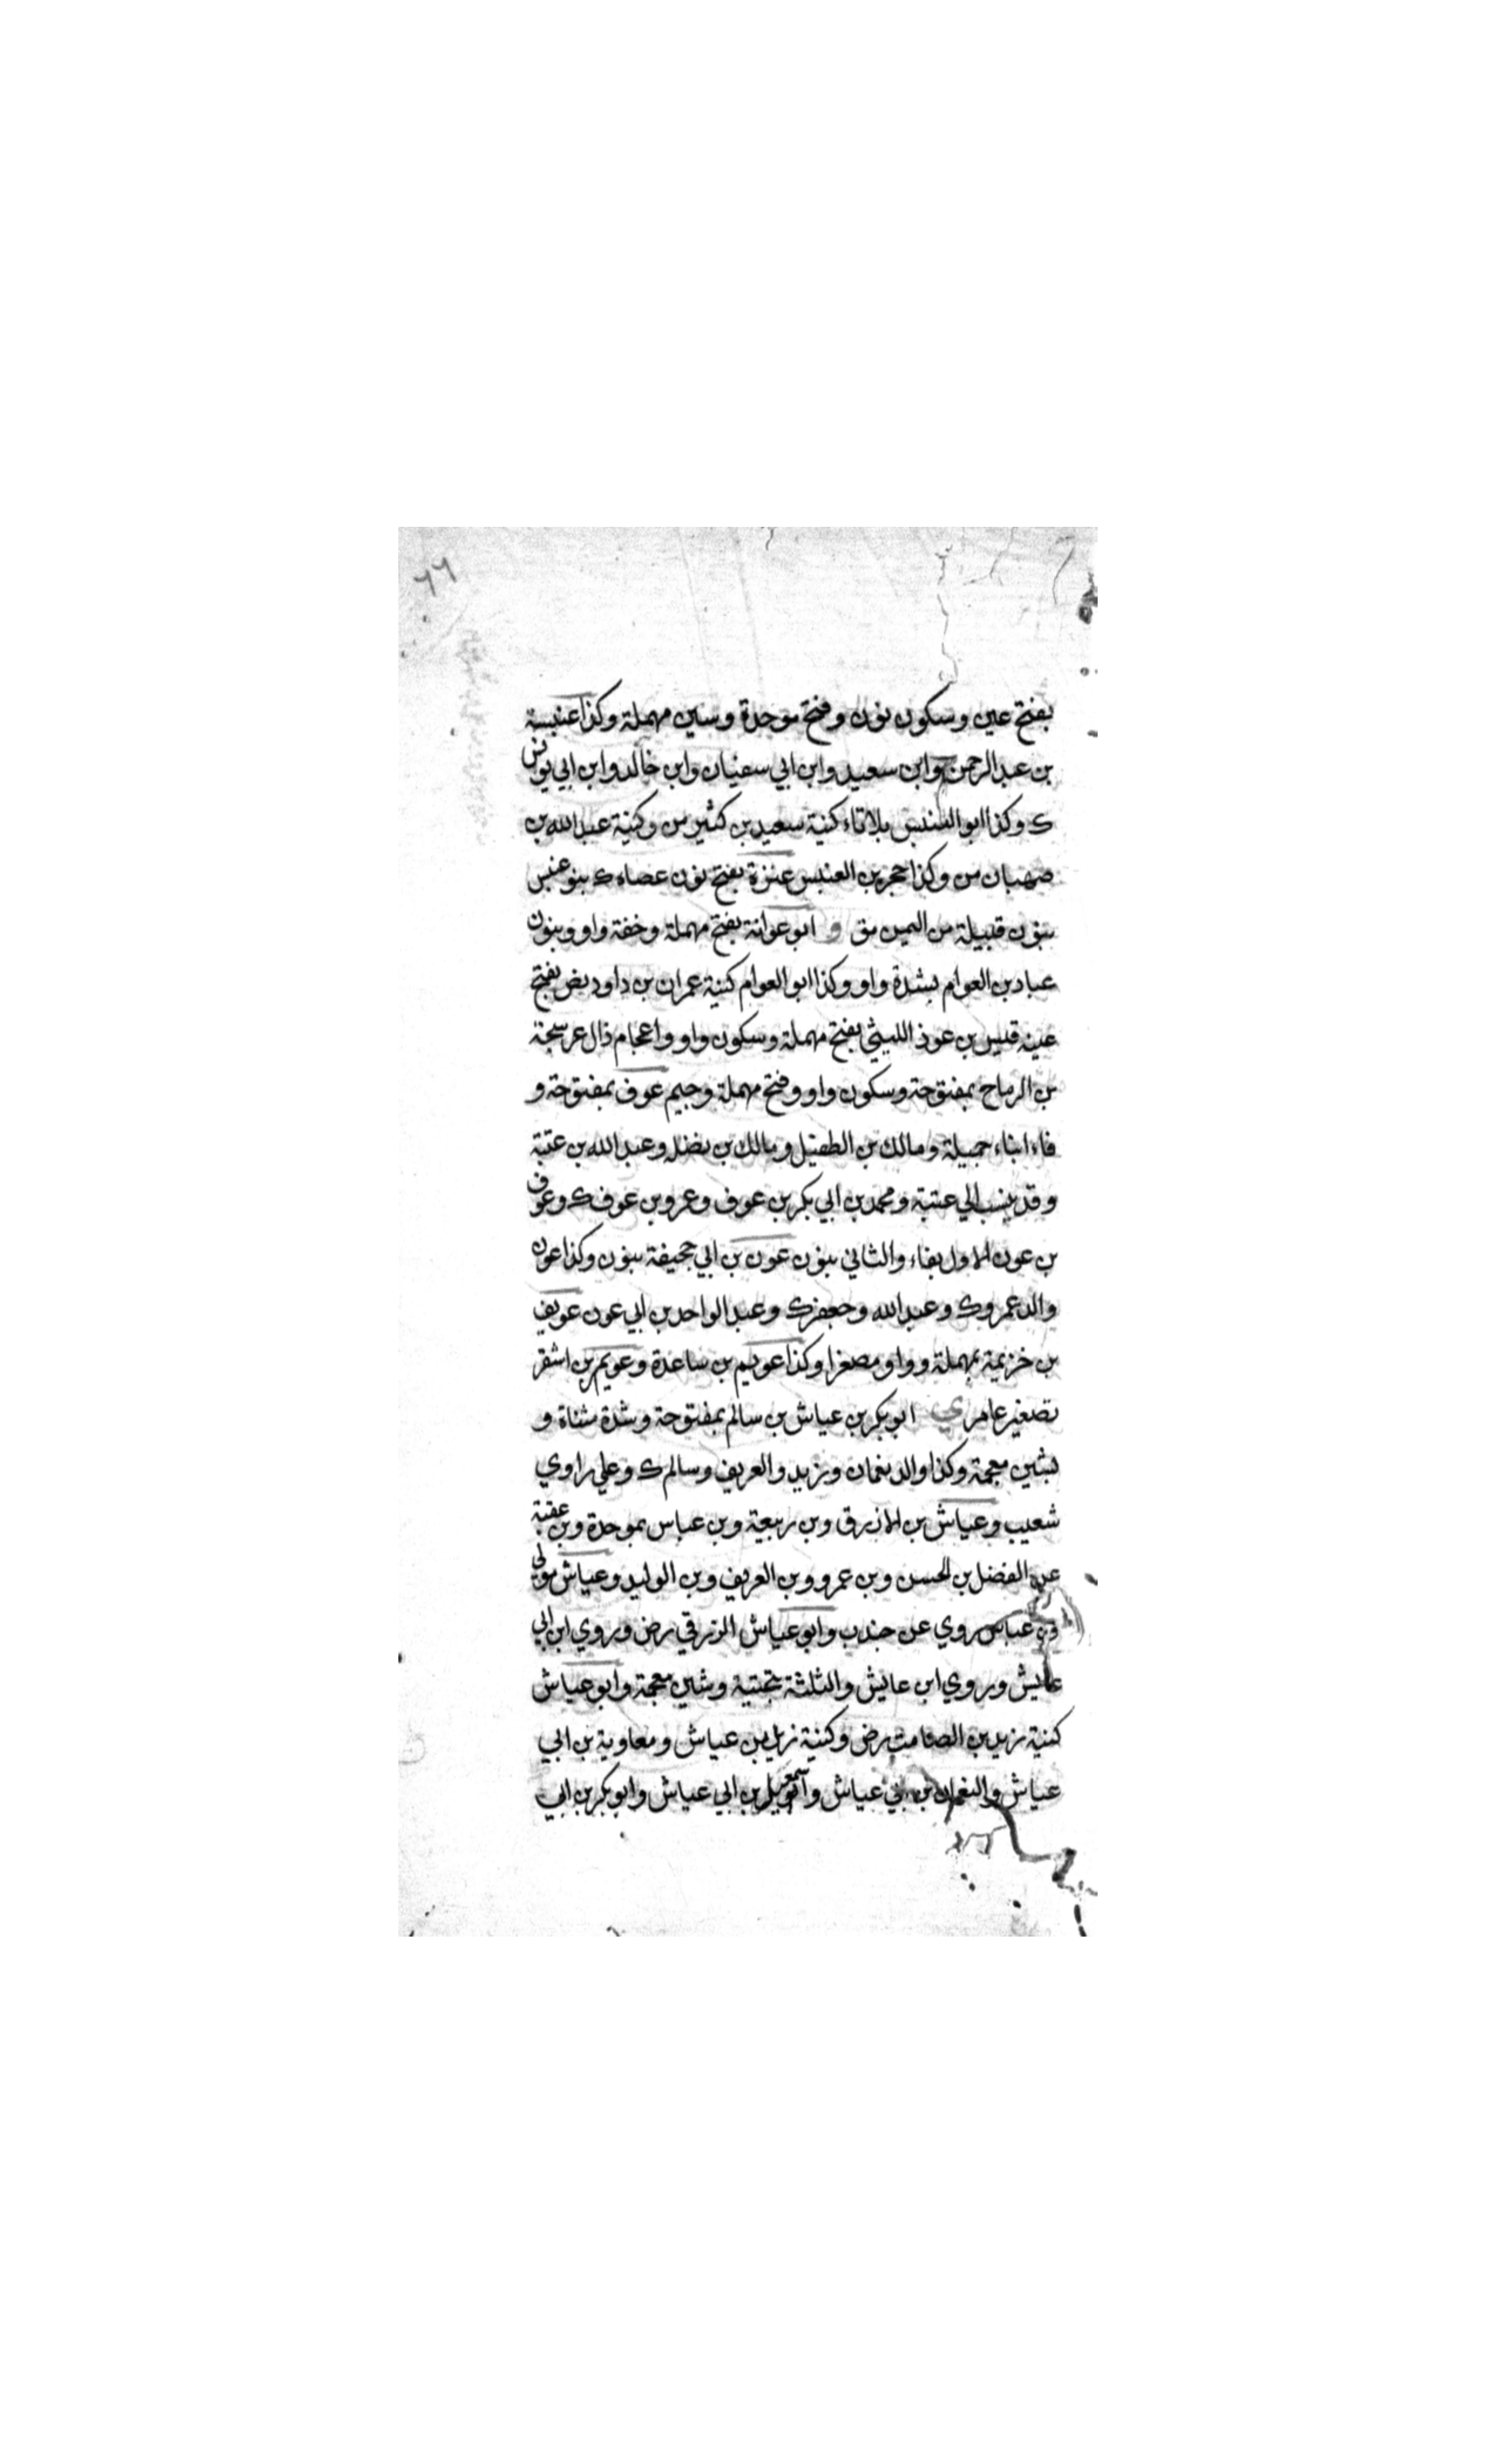 ٦٦
بفتح عين وسكون نون وفتح موحدة وسين مهملة وكذا عنبسة
بن عبد الرحمن وابن سعيد وابن ابي سفيان وابن خالد وابن ابي يونس
ك وكذا ابو العنبس بلا تاء كنية سعيد بن كثير من وكنية عبد الله بن
صهبان من وكذا حجر بن العنبس عنزة بفتح نون عصاء ك بنو عنس
بنون قبيلة من اليمن مق و ابو عوانة بفتح مهملة وخفة واو وبنون
عباد بن العوام بشدة واو وكذا ابو العوام كنية عمران بن داود يض بفتح
عينه قيس بن عوذ الليثي بفتح مهملة وسكون واو واعجام ذال عوسجة
بن الرماح بمفتوحة وسكون واو وفتح مهملة وجيم عوف بمفتوحة و
فاء ابناء جميلة ومالك بن الطفيل ومالك بن نضلة وعبد الله بن عتبة
وقد ينسب الي عتبة ومحمد بن ابي بكر بن عوف وعمرو بن عوف ك وعوف
بن عون الاول بفاء والثاني بنون عون بن ابي جحيفة بنون وكذا عون
والد عمرو ك وعبد الله وجعفر ك وعبد الواحد بن ابي عون عويف
بن خزيمة بمهملة وواو مصغرا وكذا عويم بن ساعدة وعويمر بن اشقر
تصغير عامر ي ابو بكر بن عياش بن سالم بمفتوحة وشدة مثناة و
بشين معجمة وكذا والد نعمان ويزيد والعريف وسالم ك وعلي راوي
شعيب وعياش بن الازرق وبن ربيعة وبن عباس بموحدة وبن عقبة
عن الفضل بن الحسن وبن عمرو وبن العريف وبن الوليد وعياش مولي
بن عباس روي عن جندب وابو عياش الزرقي رض وروي ابن ابي
عايش وروي ابن عايش والثلثة بتحتية وشين معجمة وابو عياش
كنية زيد بن الصامت رض وكنية زيد بن عياش ومعاوية بن ابي
عياش والنعمان بن ابي عياش واسمعيل بن ابي عياش وابو بكر بن ابي